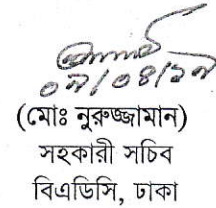 ০৯/০৪/১৯
(মোঃ নুরুজ্জামান)
সহকারী সচিব
বিএডিসি, ঢাকা